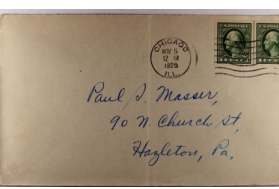 CHICAGO
NOV 5
12 M
1925
ILL.
Paul J. Masser,
90 N. Church St,
Hazleton, Pa.